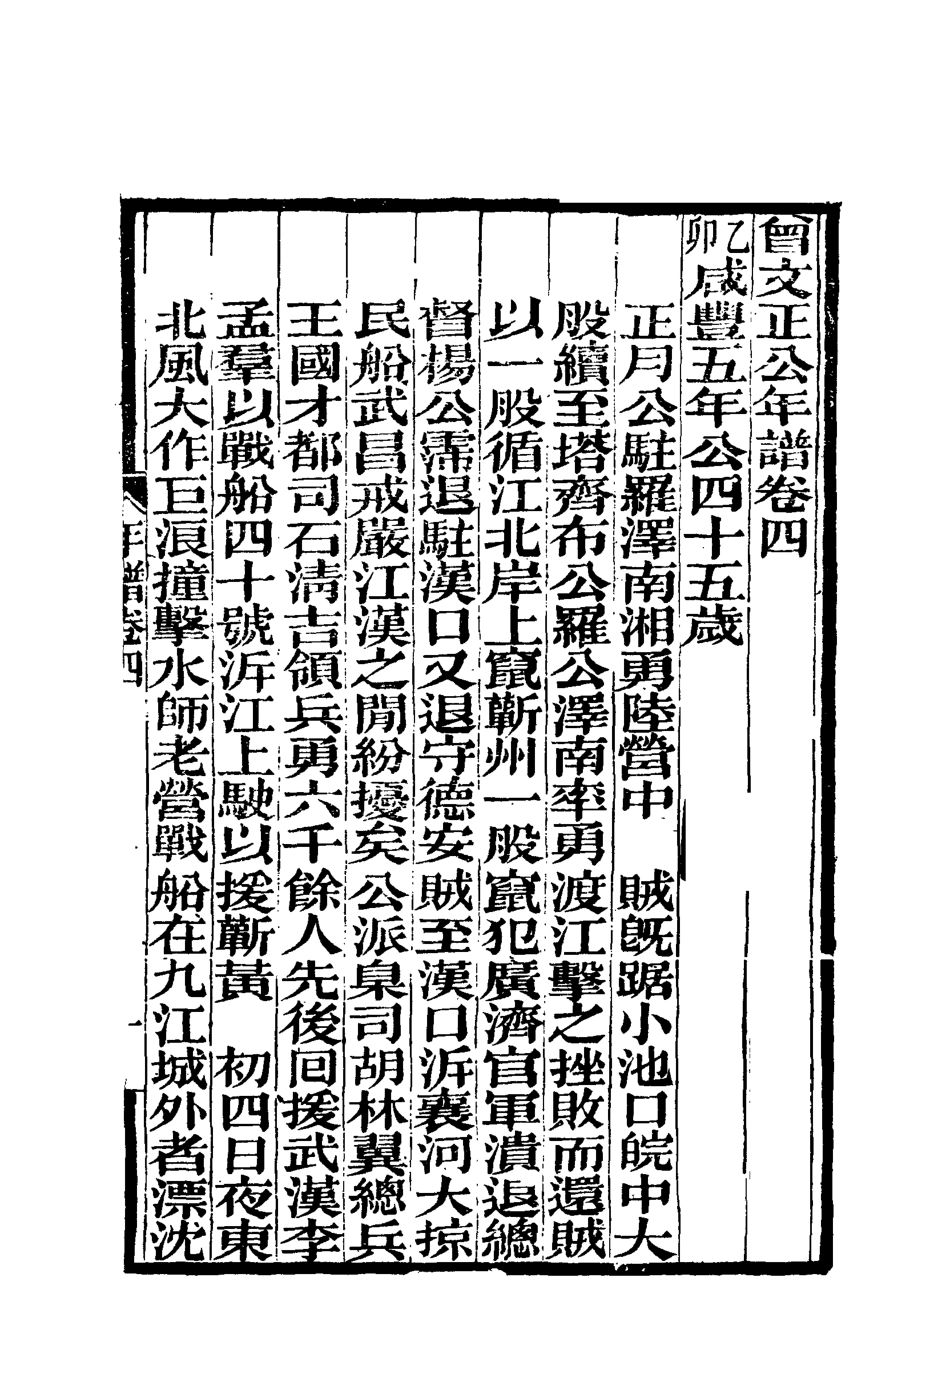 曾文正公年譜卷四
乙卯咸豐五年公四十五歲
正月公駐羅澤南湘勇陸營中　賊既踞小池口皖中大
股續至塔齊布公羅公澤南率勇渡江擊之挫敗而還賊
以一股循江北岸上竄蘄州一股竄犯廣濟官軍潰退總
督楊公霈退駐漢口又退守德安賊至漢口泝襄河大掠
民船武昌戒嚴江漢之閒紛擾矣公派臬司胡林翼總兵
王國才都司石淸吉領兵勇六千餘人先後回援武漢李
孟羣以戰船四十號泝江上駛以援蘄黃　初四日夜東
北風大作巨浪撞擊水師老營戰船在九江城外者漂沈
年譜卷四
一